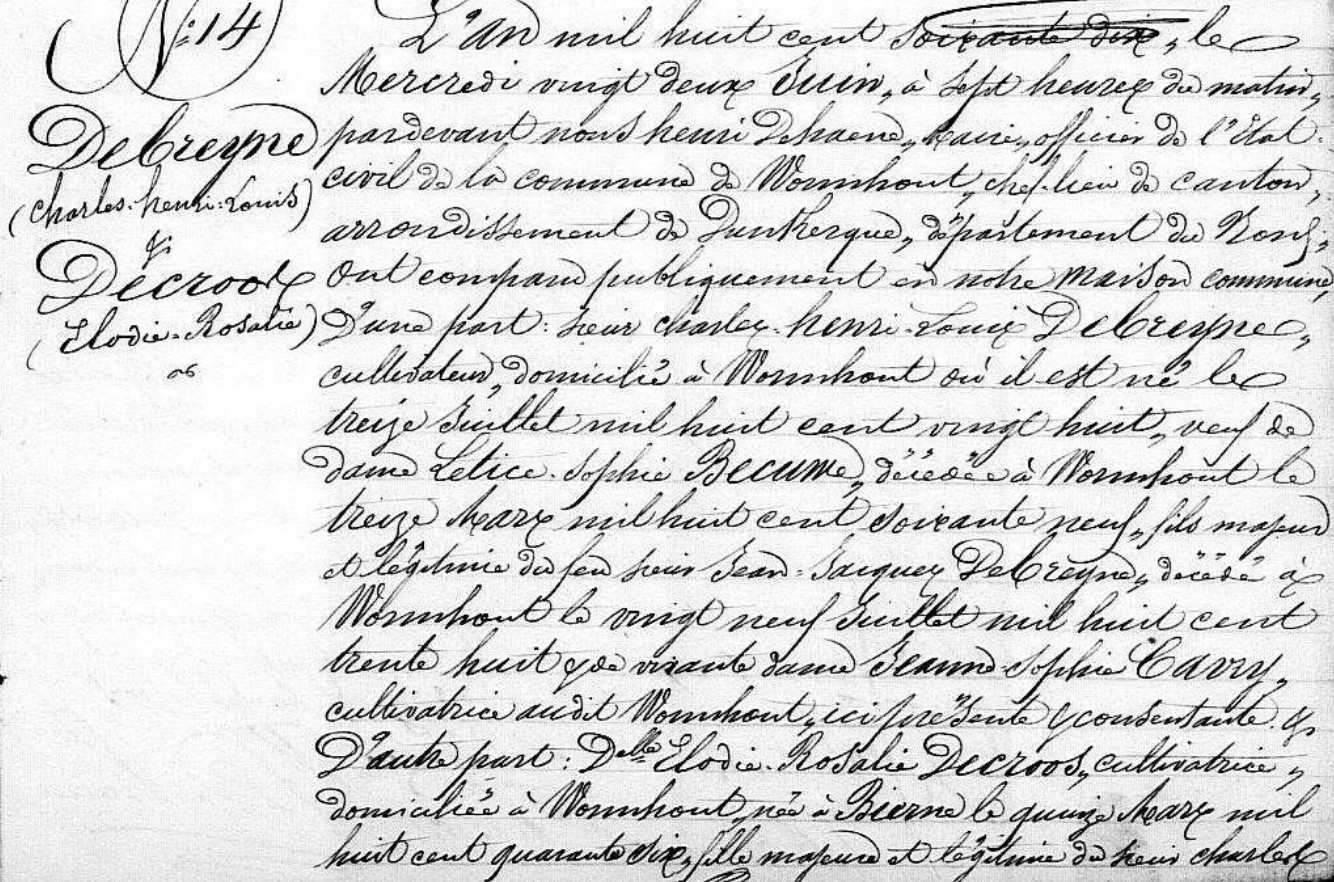 N.° 14
DeCreyne
(Charles-henri-Louis)
&
Decroos
(Elodie-Rosalie)
L'an mil huit cent soixante dix, le
Mercredi vingt deux Juin, à sept heures du matin,
pardevant nous henri Dehaene, Maire, officier de l'Etat
civil de la commune de Wormhout, chef-lieu de canton,
arrondissement de Dunkerque, département du Nord,
Ont comparu publiquement en notre maison commune,
D'une part: sieur Charles-henri-Louis DeCreyne,
cultivateur, domicilié à Wormhout où il est né le
treize Juillet mil huit cent vingt huit, veuf de
dame Letice-Sophie Becuwe, décédée à Wormhout le
treize Mars mil huit cent soixante neuf, fils majeur
et légitime du feu sieur Jean-Jacques DeCreyne, décédé à
Wormhout le vingt neuf Juillet mil huit cent
trente huit & de vivante dame Jeanne-Sophie Cavry,
cultivatrice audit Wormhout, ici présente & consentante. &
D'autre part: Delle Elodie-Rosalie Decroos, cultivatrice,
domiciliée à Wormhout, née à Bierne le quinze Mars mil
huit cent quarante six, fille majeure et légitime du sieur Charles